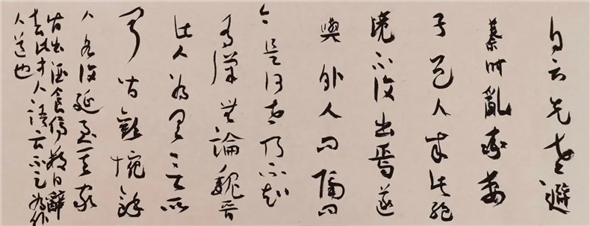 自云先世避
秦時亂率妻
子邑人来此絶
境不復出焉遂
與外人間隔問
今是何世乃不知
有漢無論魏晉
此人為具言所
聞皆歎惋餘
人各復延至其家
皆出酒食停數日辭
去此中人語云不足為外
人道也